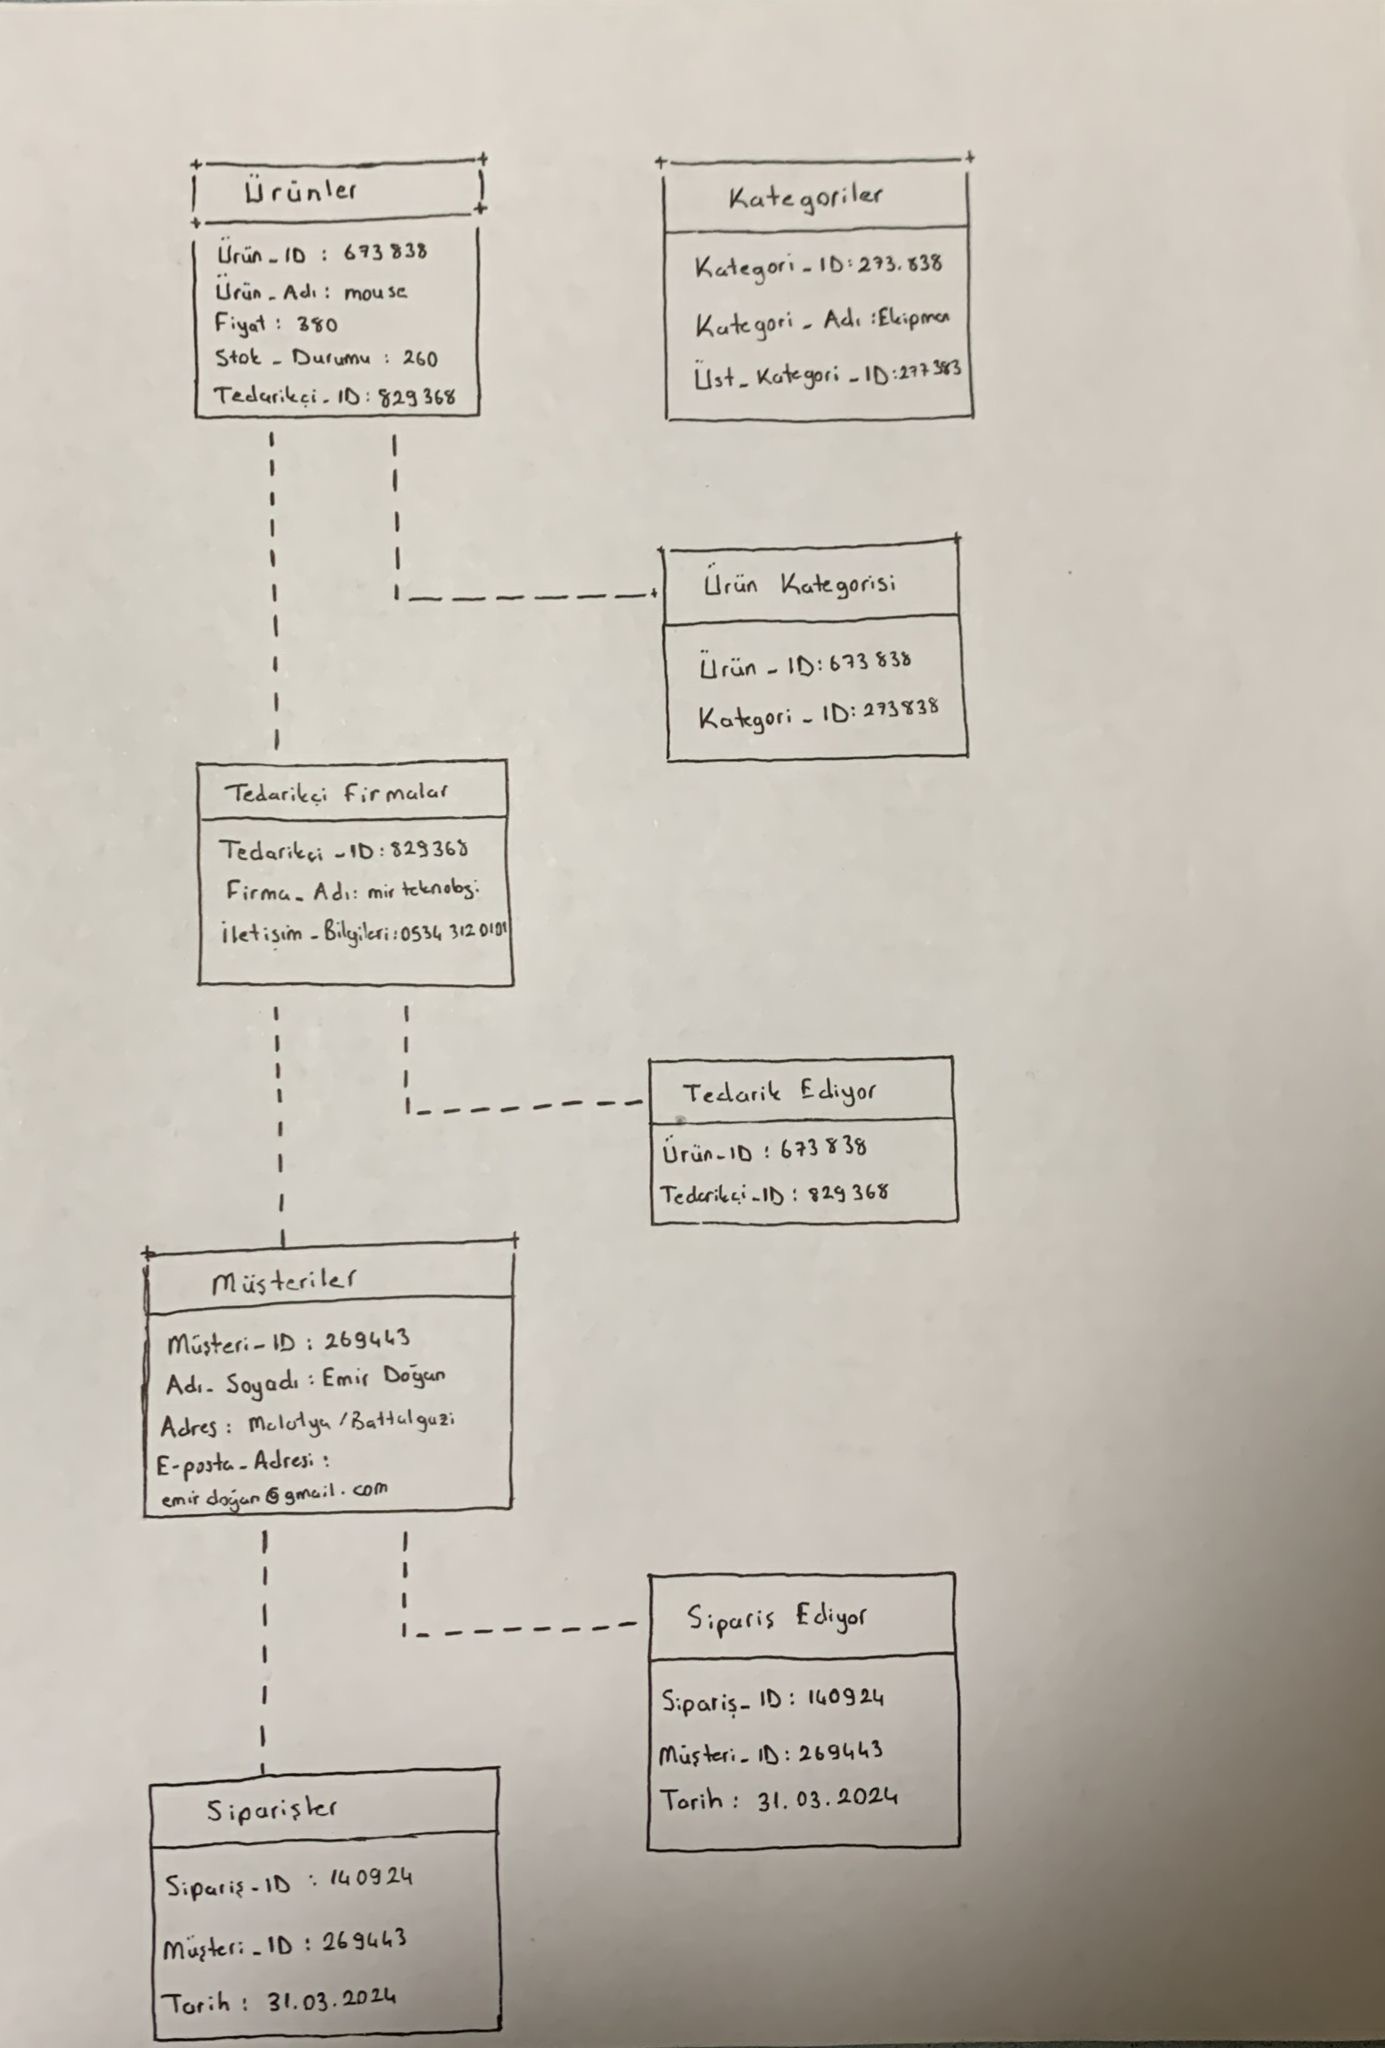 Ürünler
Ürün_ID : 673838
Ürün_Adı : mouse
Fiyat : 380
Stok_Durumu : 260
Tedarikçi_ID : 829368
Kategoriler
Kategori_ID: 273.838
Kategori_Adı :Ekipman
Üst_Kategori_ID:277383
Ürün Kategorisi
Ürün_ID: 673838
Kategori_ID: 273838
Tedarikçi Firmalar
Tedarikçi_ID: 829368
Firma_Adı: mir teknoloji
İletişim_Bilgileri:0534 312 0101
Tedarik Ediyor
Ürün_ID : 673838
Tedarikçi_ID : 829368
Müşteriler
Müşteri_ID : 269443
Adı_Soyadı : Emir Doğan
Adres : Malatya /Battalgazi
E-posta_Adresi :
emirdoğan@gmail.com
Sipariş Ediyor
Sipariş_ID : 140924
Müşteri_ID : 269443
Tarih : 31.03.2024
Siparişler
Sipariş_ID : 140924
Müşteri_ID : 269443
Tarih : 31.03.2024